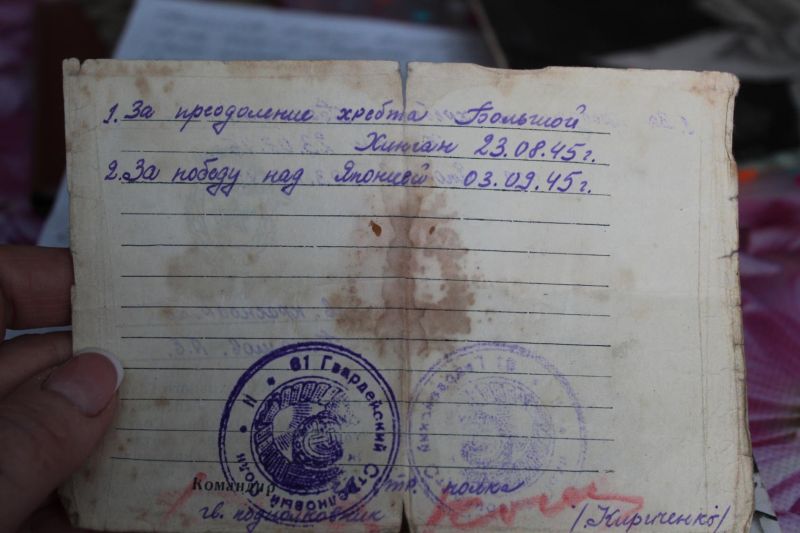 1. За преодоление хребта Большой
Хинган 23.08.45г.
2. За победу над Японией 03.09.45г.
61 Гвардейский Стрелковый Полк
Командир стр. полка
гв. подполковник /Кириченко/